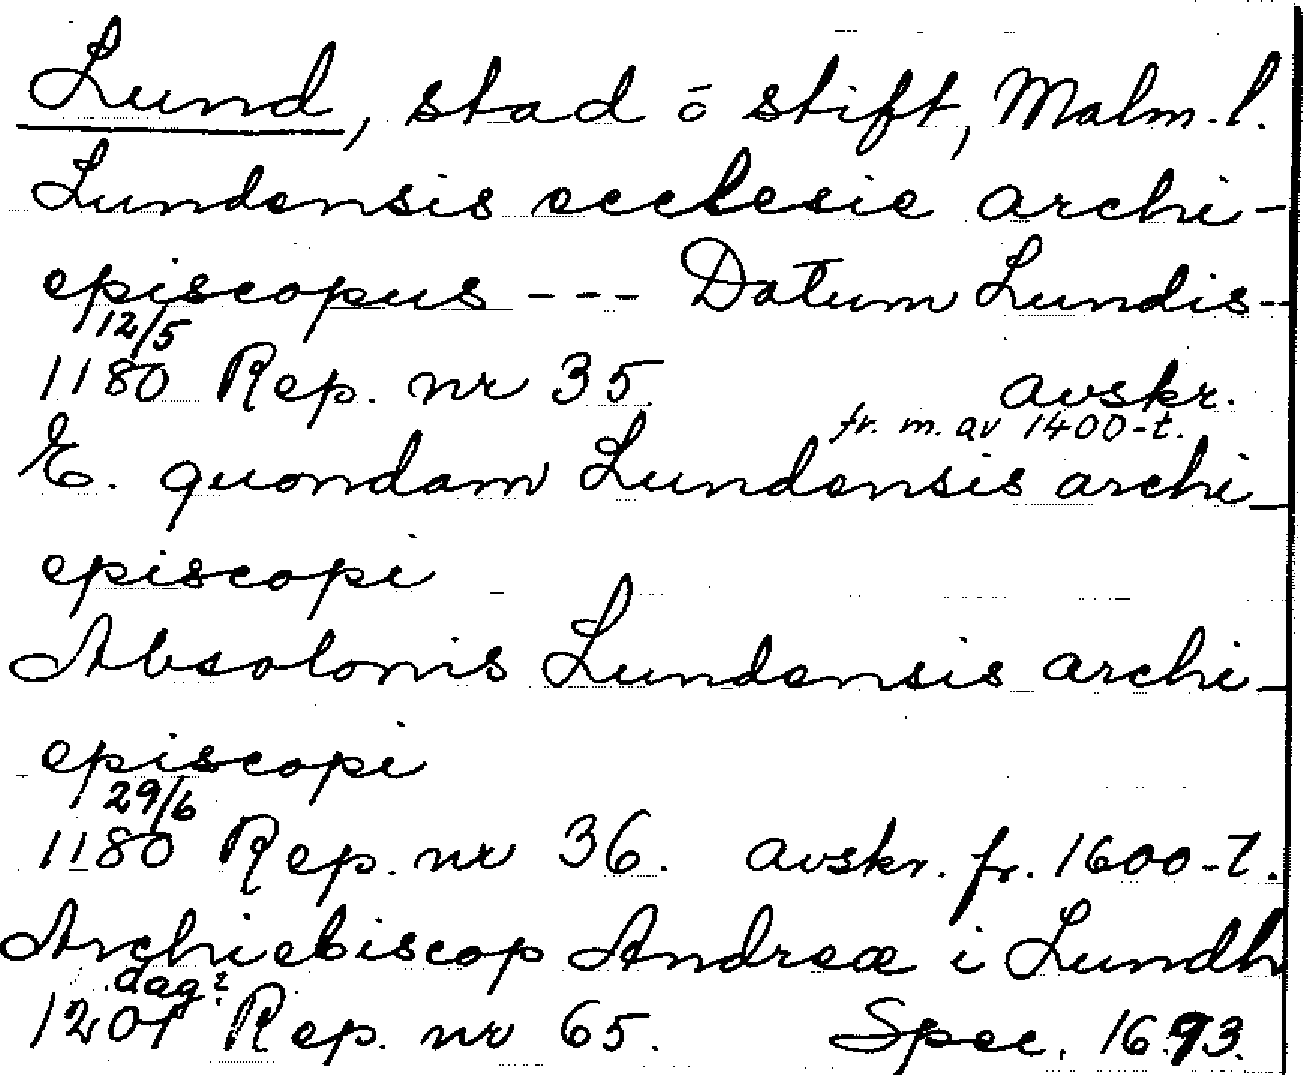 Lund, stad o stift, Malm. l.
Lundensis ecclesie archi-
episcopus --- Datum Lundis--
12/5
1180 Rep. nr 35 avskr.
fr. m. av 1400-t.
E. quondam Lundensis archi-
episcopi
Absolonis Lundensis archi-
episcopi
29/6
1180 Rep. nr 36. avskr. fr. 1600-t.
Archiebiscop Andreæ i Lundh
dag?
1201 Rep. nr 65. Spec. 1693.